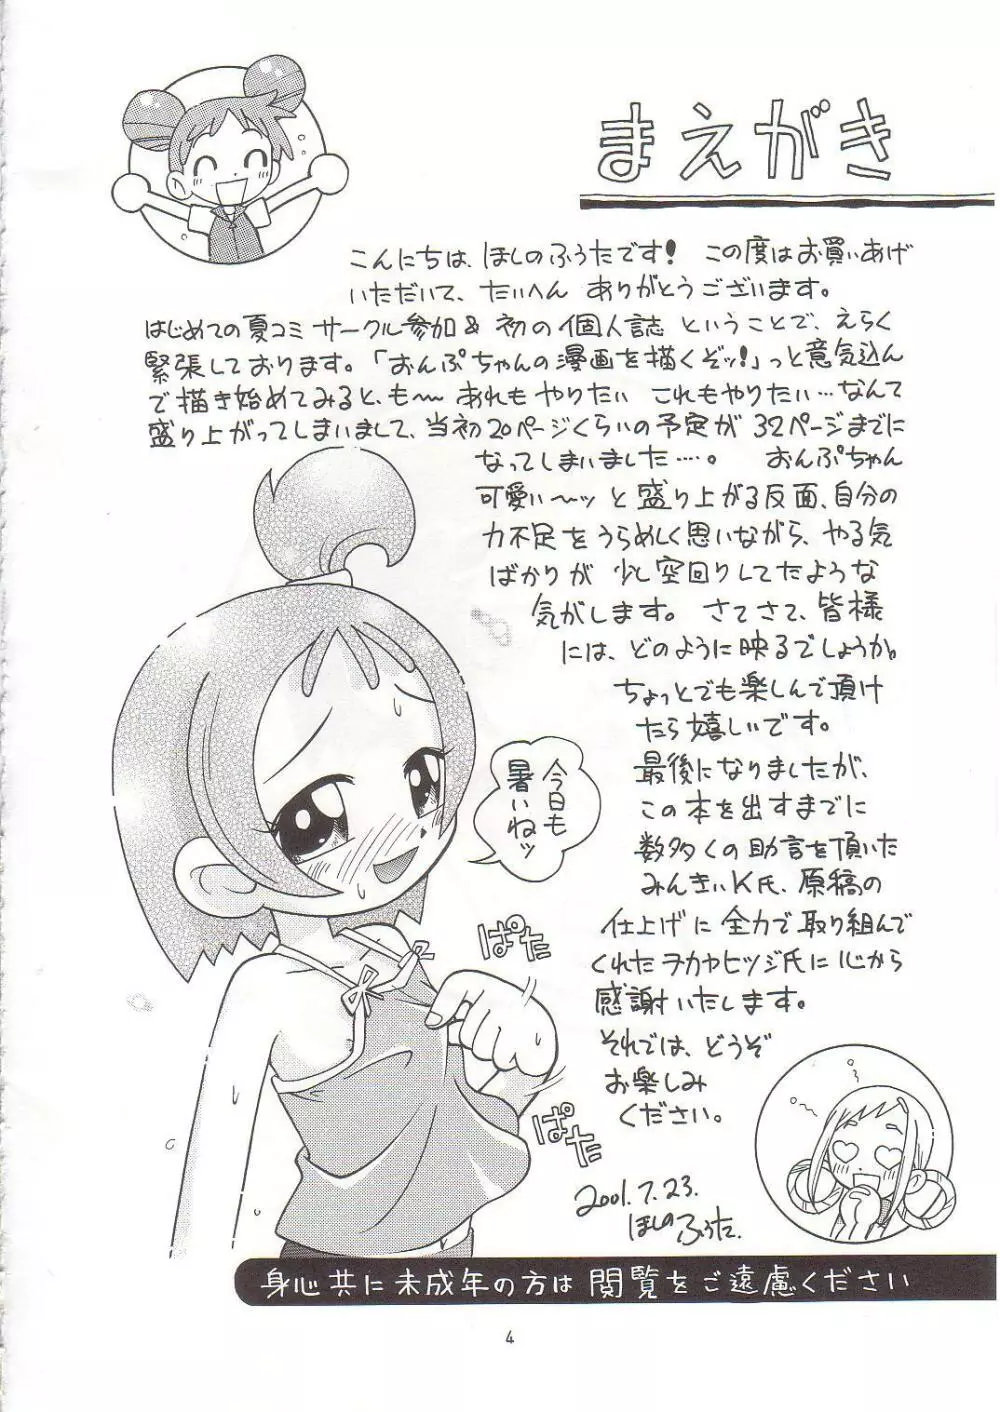 まえがき
こんにちは、ほしのふうたです! この度はお買いあげ
いただいて、たいへん ありがとうございます。
はじめての夏コミ サークル参加 & 初の個人誌 ということで、えらく
緊張しております。「おんぷちゃんの漫画を描くぞッ!」っと意気込ん
で描き始めてみると、も〜 あれもやりたい これもやりたい…なんて
盛り上がってしまいまして、当初20ページくらいの予定が32ページまでに
なってしまいました…。 おんぷちゃん
可愛い〜ッと盛り上がる反面、自分の
力不足をうらめしく思いながら、やる気
ばかりが 少し空回りしてたような
気がします。 さてさて、皆様
には、どのように映るでしょうか。
ちょっとでも楽しんで頂け
たら嬉しいです。
最後になりましたが、
この本を出すまでに
数多くの助言を頂いた
みんきぃK氏、原稿の
仕上げに全力で取り組んで
くれたヲカヤヒツジ氏に心から
感謝いたします。
それでは、どうぞ
お楽しみ
ください。
2001.7.23.
ほしのふうた.
今日も
暑いねッ
ぱた
ぱた
身心共に未成年の方は閲覧をご遠慮ください
4